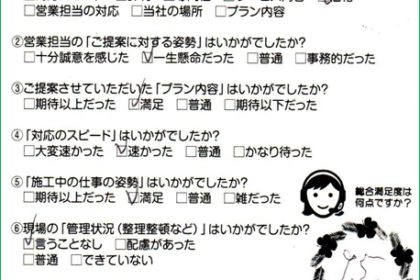 □営業担当の対応 □当社の場所 □プラン内容
②営業担当の「ご提案に対する姿勢」はいかがでしたか?
□十分誠意を感じた ☑一生懸命だった □普通 □事務的だった
③ご提案させていただいた「プラン内容」はいかがでしたか?
□期待以上だった ☑満足 □普通 □期待以下だった
④「対応のスピード」はいかがでしたか?
□大変速かった ☑速かった □普通 □かなり待った
⑤「施工中の仕事の姿勢」はいかがでしたか?
□期待以上だった ☑満足 □普通 □雑だった
⑥現場の「管理状況(整理整頓など)」はいかがでしたか?
☑言うことなし □配慮があった
□普通 □できていない
総合満足度は
何点ですか?
95